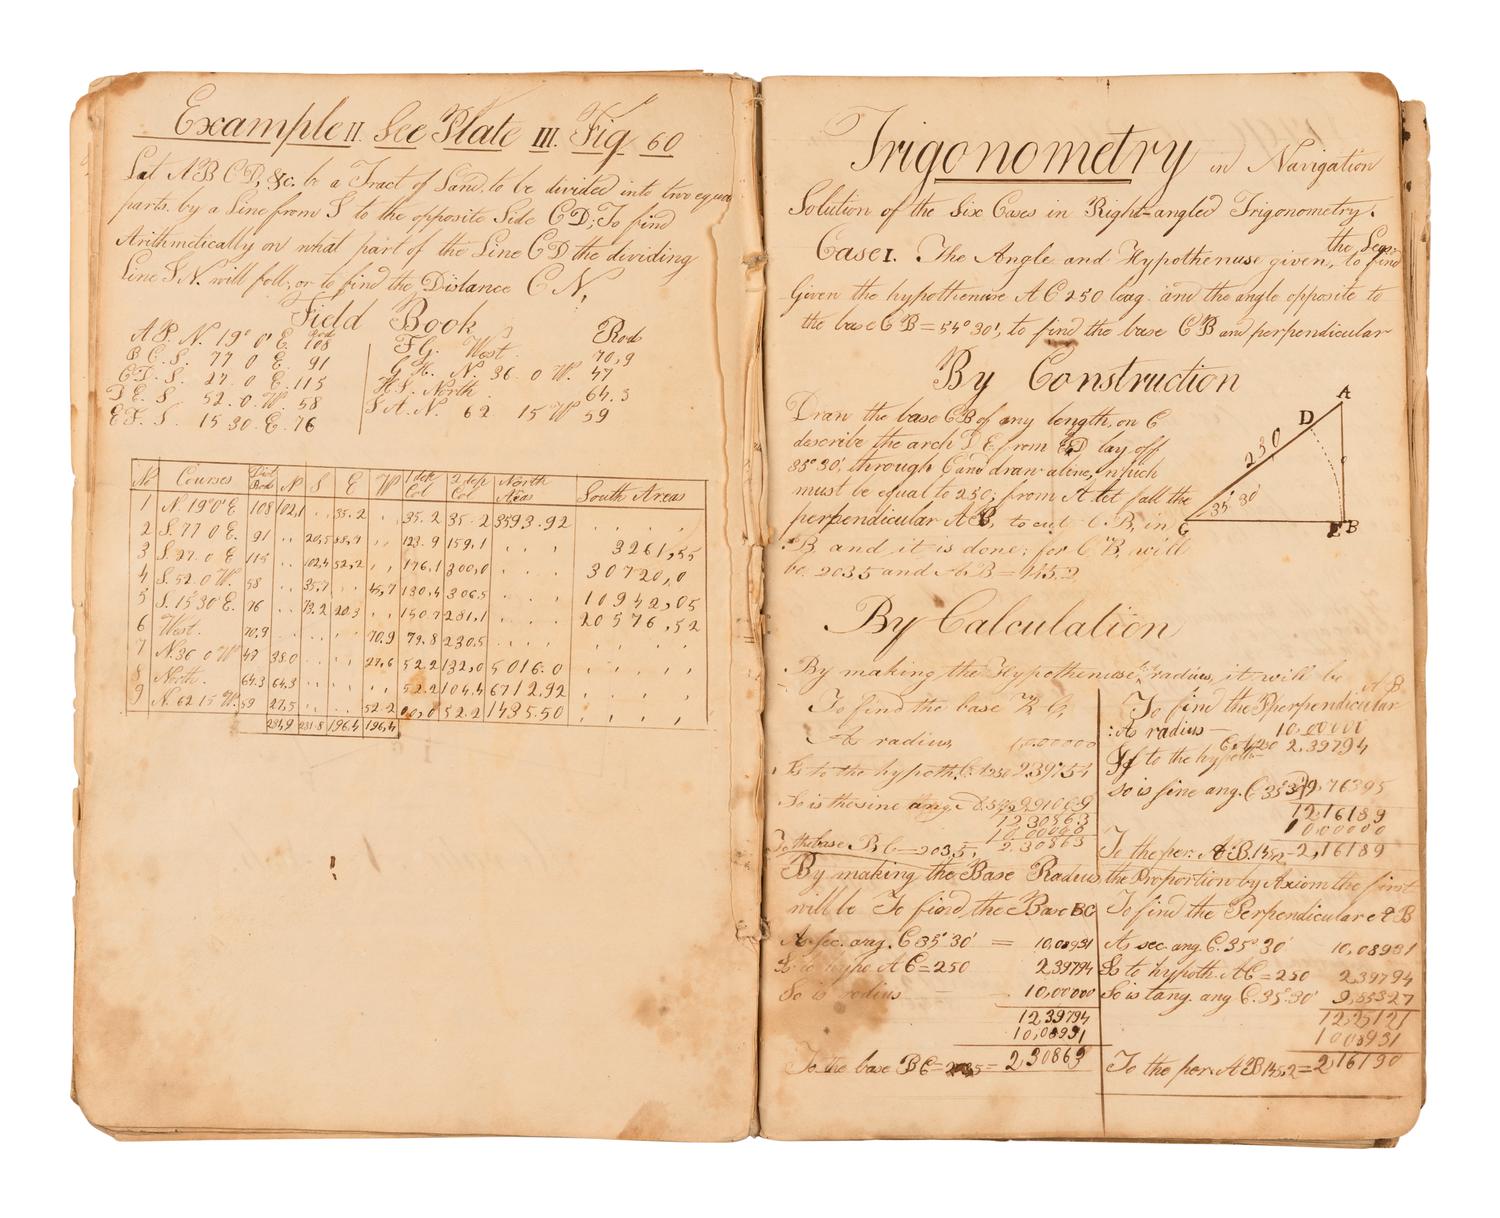 Example II. See Plate III. Fig. 60
Let A B C D, &c. be a Tract of Land to be divided into two equal
parts by a Line from I to the opposite Side C D; To find
Arithmetically on what part of the Line C D the dividing
Line I N. will fall; or to find the Distance C N,
Field Book
A B. N. 19° 0' E. Rod 108
B C. S. 77 0 E. 91
C D. S. 27. 0 E. 115
D E. S. 52. 0. W. 58
E F. S. 15 30. E. 76
F G. West. Rod 70,9
G H. N. 36. 0 W. 47
H I. North. 64.3
I A. N. 62 15 W 59
No Courses Dist Rod N S E W 1 dep Col 2 dep Col North Areas South Areas
1 N. 19° 0' E 108 102,1 . . 35.2 . . 35.2 35.2 3593.92 . . . .
2 S. 77 0 E. 91 . . 20,5 88,7 . . 123.9 159,1 . . . 3261,55
3 S 27. 0 E 115 . . 102,4 52,2 . . 176,1 300,0 . . . 30720,0
4 S. 52 0 W. 58 . . 35,7 . . 45,7 130,4 306,5 . . . 10942,05
5 S. 15° 30' E. 76 . . 73.2 20.3 . . 150,7 281,1 . . . 20576,52
6 West. 70,9 . . . . . . 70.9 79.8 230.5
7 N. 36 0 W 47 38.0 . . . . 27,6 52.2 132,0 5016.0
8 North. 64.3 64,3 . . . . . . 52.2 104.4 6712.92
9 N. 62 15 W. 59 27,5 . . . . 52.2 00,0 52.2 1435.50
231,9 231.8 196.4 196,4
Trigonometry in Navigation
Solution of the Six Cases in Right-angled Trigonometry.
Case I. The Angle and Hypothenuse given, to find the Legs
Given the hypothenuse A C 250 leag. and the angle opposite to
the base C B = 54° 30', to find the base C B and perpendicular
By Construction
Draw the base C B of any length, on C
describe the arch D E from E D lay off
35° 30', through C and draw a line, which
must be equal to 250; from A let fall the
perpendicular A B, to cut C B, in
B and it is done; for C B, will
be 2035 and A B = 145.2
A
D
250
35° 30'
C
E B
By Calculation
By making the Hypothenuse radius, it will be
To find the base B C,
As radius 10.00000
Is to the hypoth. C A 250 239754
So is the sine ang. A 54° 9,91069
12 30863
10,00000
To the base B C = 203,5, 2.30863
To find the Perpendicular A B
As radius — 10,00000
Is to the hypoth C A 250 2,39794
so is sine ang. C 35° 30' 9,76395
12,16189
10,00000
To the per. A B. 145,2 - 2,16189
By making the Base Radius, the Proportion by Axiom the first
will be To find the Base BC
As sec. ang. C 35° 30' = 10,08931
Is to hypo A C = 250 2,39794
So is radius 10,00000
12 39794
10,08931
To the base B C = 2035 = 2 30863
To find the Perpendicular A B
As sec. ang. C. 35° 30' 10,08931
Is to hypoth. A C = 250 2,39794
So is tang. ang C. 35° 30' 9,85327
12,25121
1008931
To the per. A B 145,2 = 2,16190